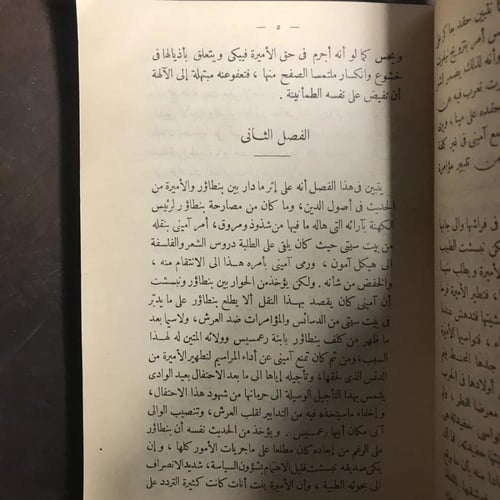 — ٥ —
ويحس كما لو أنه أجرم فى حق الأميرة فيبكى ويتعلق بأذيالها فى
خشوع وانكسار ملتمسا الصفح منها ، فتعفوعنه مبتهلة إلى الآلهة
أن تفيض على نفسه الطمأنينة .
الفصل الثانى
يتبين فى هذا الفصل أنه على إثر ما دار بين بنطاؤر والأميرة من
الحديث فى أصول الدين، وما كان من مصارحة بنطاؤر لرئيس
الكهنة بآرائه التى هاله ما فيها من شذوذ ومروق، أمر آمينى بنقله
من بيت سيتى حيث كان يلقى على الطلبة دروس الشعر والفلسفة
إلى هيكل آمون ، ورمى آمينى بأمره هذا الى الانتقام منه ،
والخفض من شأنه . ولكن يؤخذ من الحوار بين بنطاؤر ونبسشت
أن آمينى كان يقصد بهذا النقل ألا يطلع بنطاؤر على ما يدبر
فى بيت سيتى من الدسائس والمؤامرات ضد العرش، ولاسيما بعد
ما ظهر من كلف بنطاؤر بابنة رعمسيس وولائه المتين له لهذا
السبب، ومن ثم كان تمنع آمينى عن أداء المراسيم لتطهير الأميرة من
الدنس الذى لحقها، وتأجيله إياها الى ما بعد الاحتفال بعيد الوادى
يلتمس بهذا التأجيل الوسيلة الى حرمانها من شهود هذا الاحتفال،
وإخفاء ماسيتخذ فيه من التدابير لقلب العرش، وتنصيب الوالى
آنى مكان أبيها رعمسيس . ويؤخذ من الحديث نفسه أن بنطاؤر
على الرغم من إبعاده كان مطلعا على ماجريات الأمور كلها ، وإن
يكن صديقه نبسشت قليل الاهتمام بشؤون السياسة، شديد الانصراف
الى بحوثه الطبية ، وإن الأميرة بنت أنات كانت كثيرة التردد على